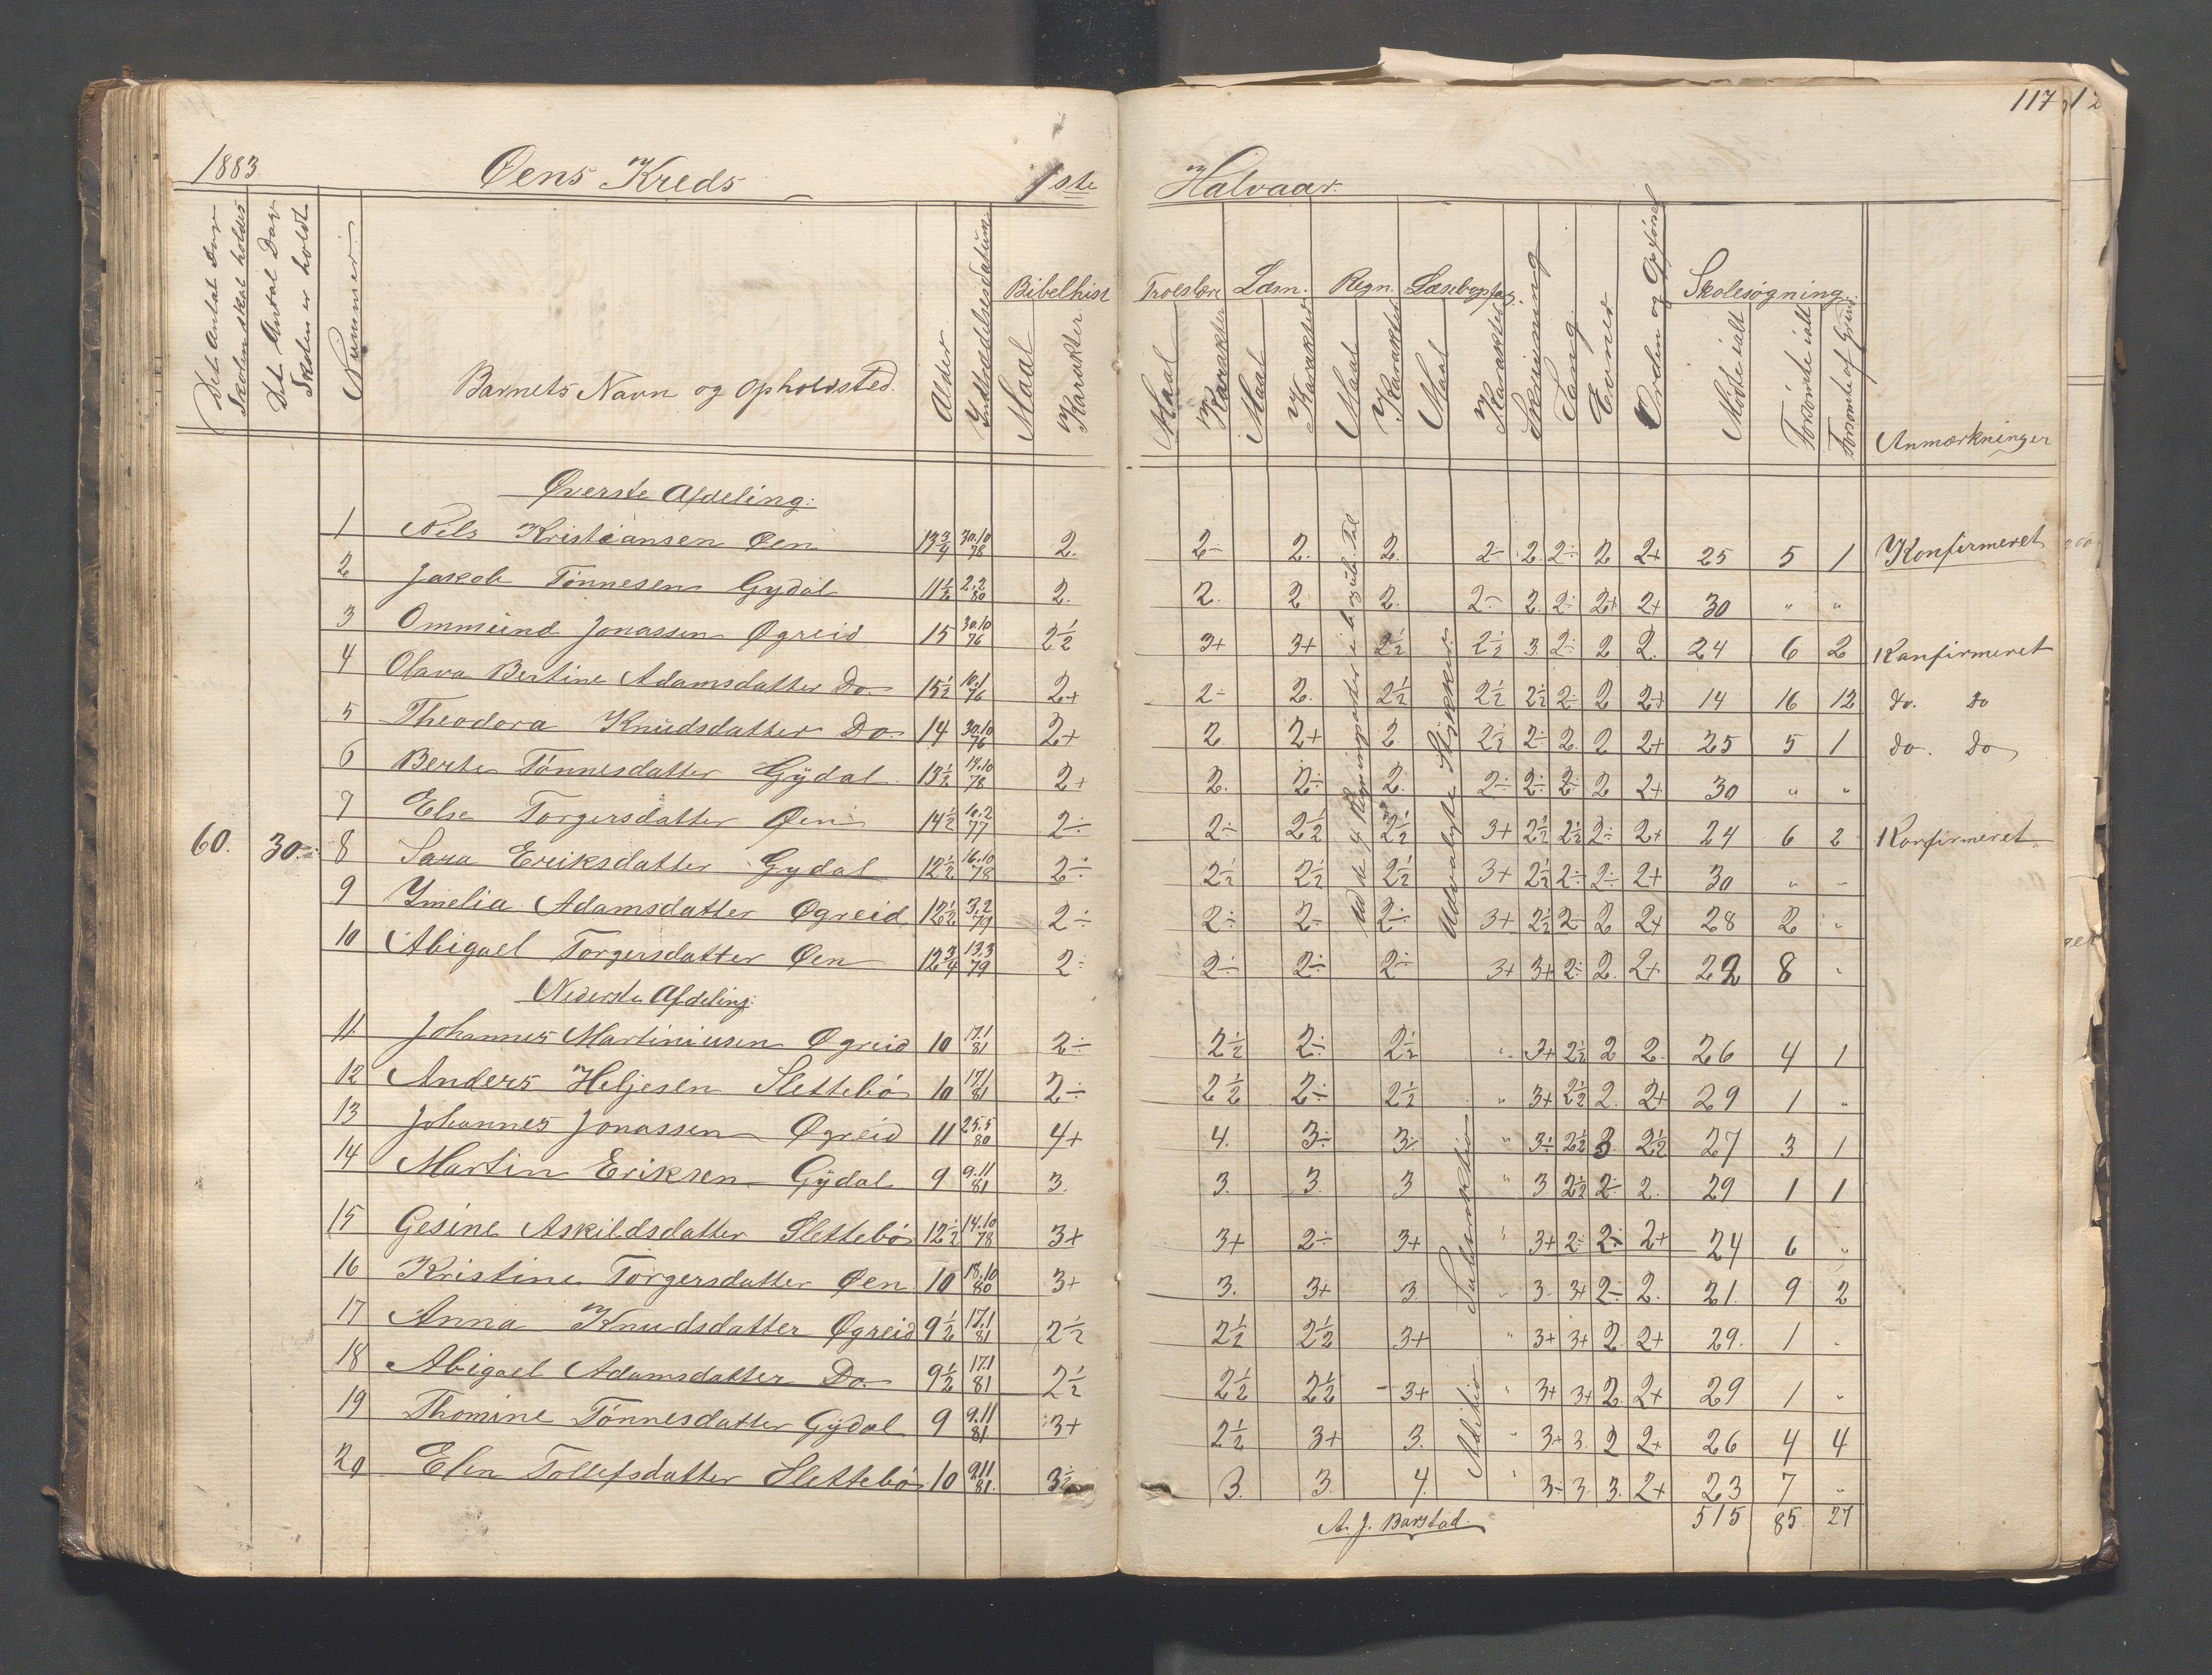 117
1883. Øens Kreds 1ste Halvaar.
Det Antal Dage Skolen skal holdes
Det Antal Dage Skolen er holdt
Nummer
Barnets Navn og Opholdsted.
Alder
Indtrædelsesdatum
Bibelhist Maal Karakter
Troeslære Maal Karakter
Læsn. Maal Karakter
Regn. Maal Karakter
Læsebogstog. Maal Karakter
Skrivning
Sang.
Evner
Orden og Opførsel
Skolesøgning. Mødte ialt Forsømte ialt Forsømte af Gyld
Anmærkninger
Øverste Afdeling:
1 Nils Kristiansen Øen 13 3/4 30.10 78 2. 2÷ 2. 2. 2÷ 2. 2÷ 2 2+ 25 5 1 Konfirmeret
2 Jakob Tönnesen Gydal 11 1/2 2.2 80 2. 2. 2 2. 2÷ 2. 2÷ 2+ 2+ 30 " "
3 Ommund Jonassen Øgreid 15 30.10 76 2 1/2 3+ 3+ 2 1/2 2 1/2 3. 2÷ 2 2. 24 6 2 Konfirmeret
4 Olava Bertine Adamsdatter Do. 15 1/2 10.1 76 2+ 2÷ 2. 2 1/2 2 1/2 2 1/2 2÷ 2 2+ 14 16 12 do. do
5 Theodora Knudsdatter Do. 14 30.10 76 2+ 2. 2+ 2 2 1/2 2÷ 2. 2 2+ 25 5 1 do. do
6 Berte Tönnesdatter Gÿdal 13 1/2 14.10 78 2+ 2. 2÷ 2. 2÷ 2÷ 2÷ 2 2+ 30 " "
7 Else Torgersdatter Øen 14 1/2 10.2 77 2÷ 2÷ 2 1/2 2 1/2 3+ 2 1/2 2 1/2 2÷ 2+ 24 6 2 Konfirmeret
60. 30. 8 Sara Eriksdatter Gydal 12 1/2 16.10 78 2÷ 2 1/2 2 1/2 2 1/2 3+ 2 1/2 2÷ 2÷ 2+ 30 " "
9 Ymelia Adamsdatter Øgreid 12 1/2 3.2 79 2÷ 2÷ 2÷ 2÷ 3+ 2 1/2 2÷ 2 2+ 28 2 "
10 Abigael Torgersdatter Øen 12 3/4 13.3 79 2÷ 2÷ 2÷ 2÷ 3+ 3+ 2÷ 2. 2+ 22 8 "
Ud de 4 Regningsarter i b. og ub. Tal
Udvalgte Stykker
Nederste Afdeling:
11. Johannes Martiniusen Øgreid 10 17.1 81 2÷ 2 1/2 2÷ 2 1/2 " 3+ 2 1/2 2 2. 26 4 1
12 Anders Heljesen Slettebö 10 17.1 81 2÷ 2 1/2 2÷ 2 1/2 " 3+ 2 1/2 2. 2+ 29 1 "
13 Johannes Jonassen Øgreid 11 25.5 80 4+ 4. 3÷ 3÷ " 3÷ 2 1/2 3. 2 1/2 27 3 1
14 Martin Eriksen Gÿdal 9 9.11 81 3. 3. 3. 3 " 3 2 1/2 2÷ 2. 29 1 1
15 Gesine Askildsdatter Slettebö 12 1/2 14.10 78 3+ 3+ 2÷ 3+ " 3+ 2÷ 2÷ 2+ 24 6 "
16 Kristine Torgersdatter Øen 10 18.10 80 3+ 3. 3+ 3. " 3. 3+ 2÷ 2. 21. 9 2
17 Anna Knudsdatter Øgreid 9 1/2 17.1 81 2 1/2 2 1/2 2 1/2 3+ " 3+ 3+ 2. 2+ 29. 1 "
18 Abigael Adamsdatter Do. 9 1/2 17.1 81 2 1/2 2 1/2 2 1/2 3+ " 3+ 3+ 2. 2+ 29 1 "
19 Thomine Tönnesdatter Gÿdal 9 9.11 81 3+ 2 1/2 3+ 3. " 3+ 3. 2 2+ 26 4 4
20 Elen Tollefsdatter Slettebö 10 9.11 81. 3 1/2 3. 3. 4. " 3÷ 3. 3. 2+ 23 7 "
Subtraktion
Adition
A. J. Barstad. 515 85 27